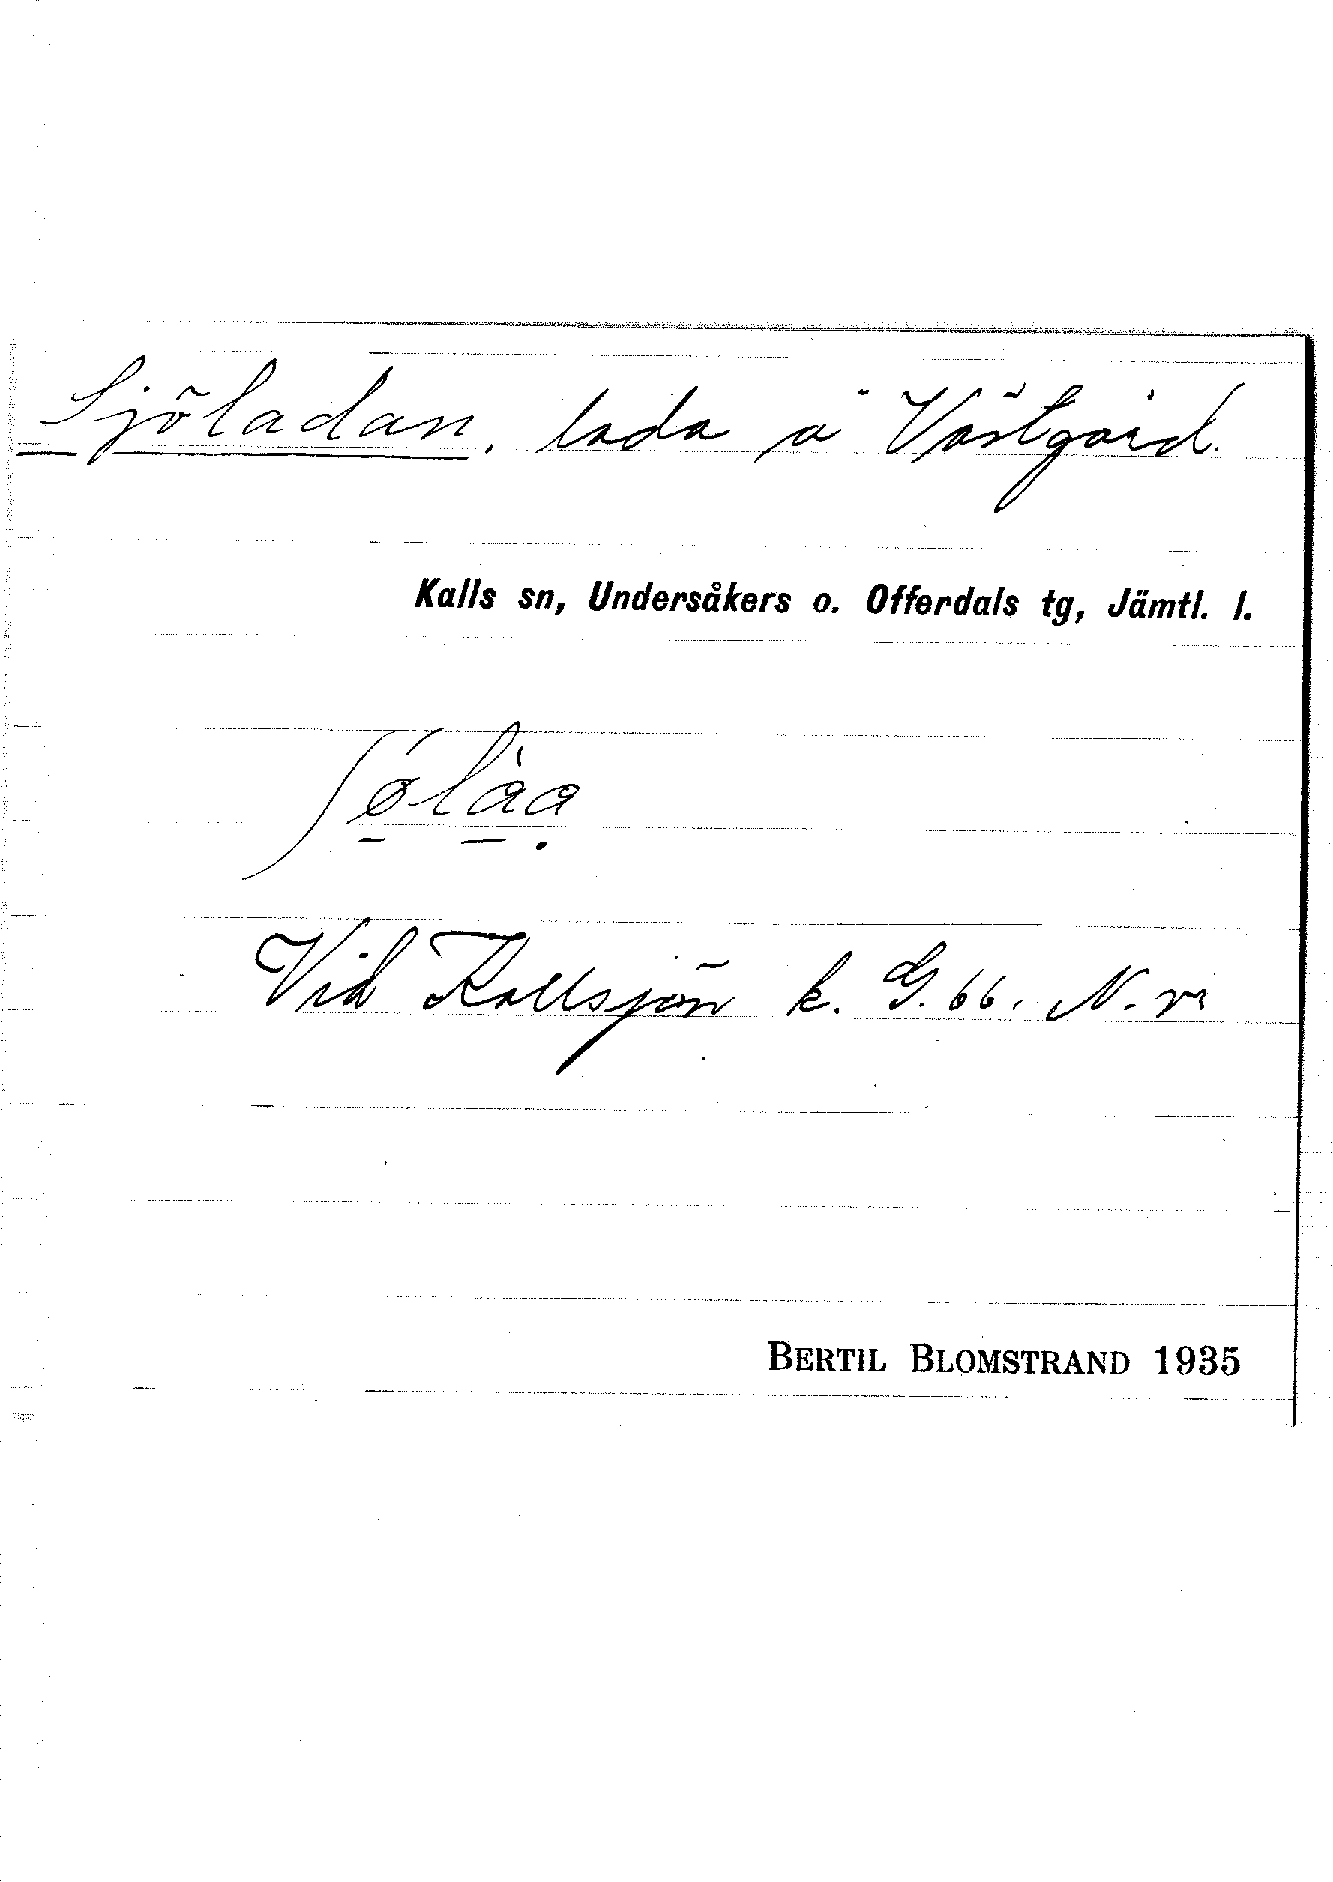 Sjöladan, lada å Västgård.
Kalls sn, Undersåkers o. Offerdals tg, Jämtl. l.
Vid Kallsjön k. G. 66. N.
BERTIL BLOMSTRAND 1935